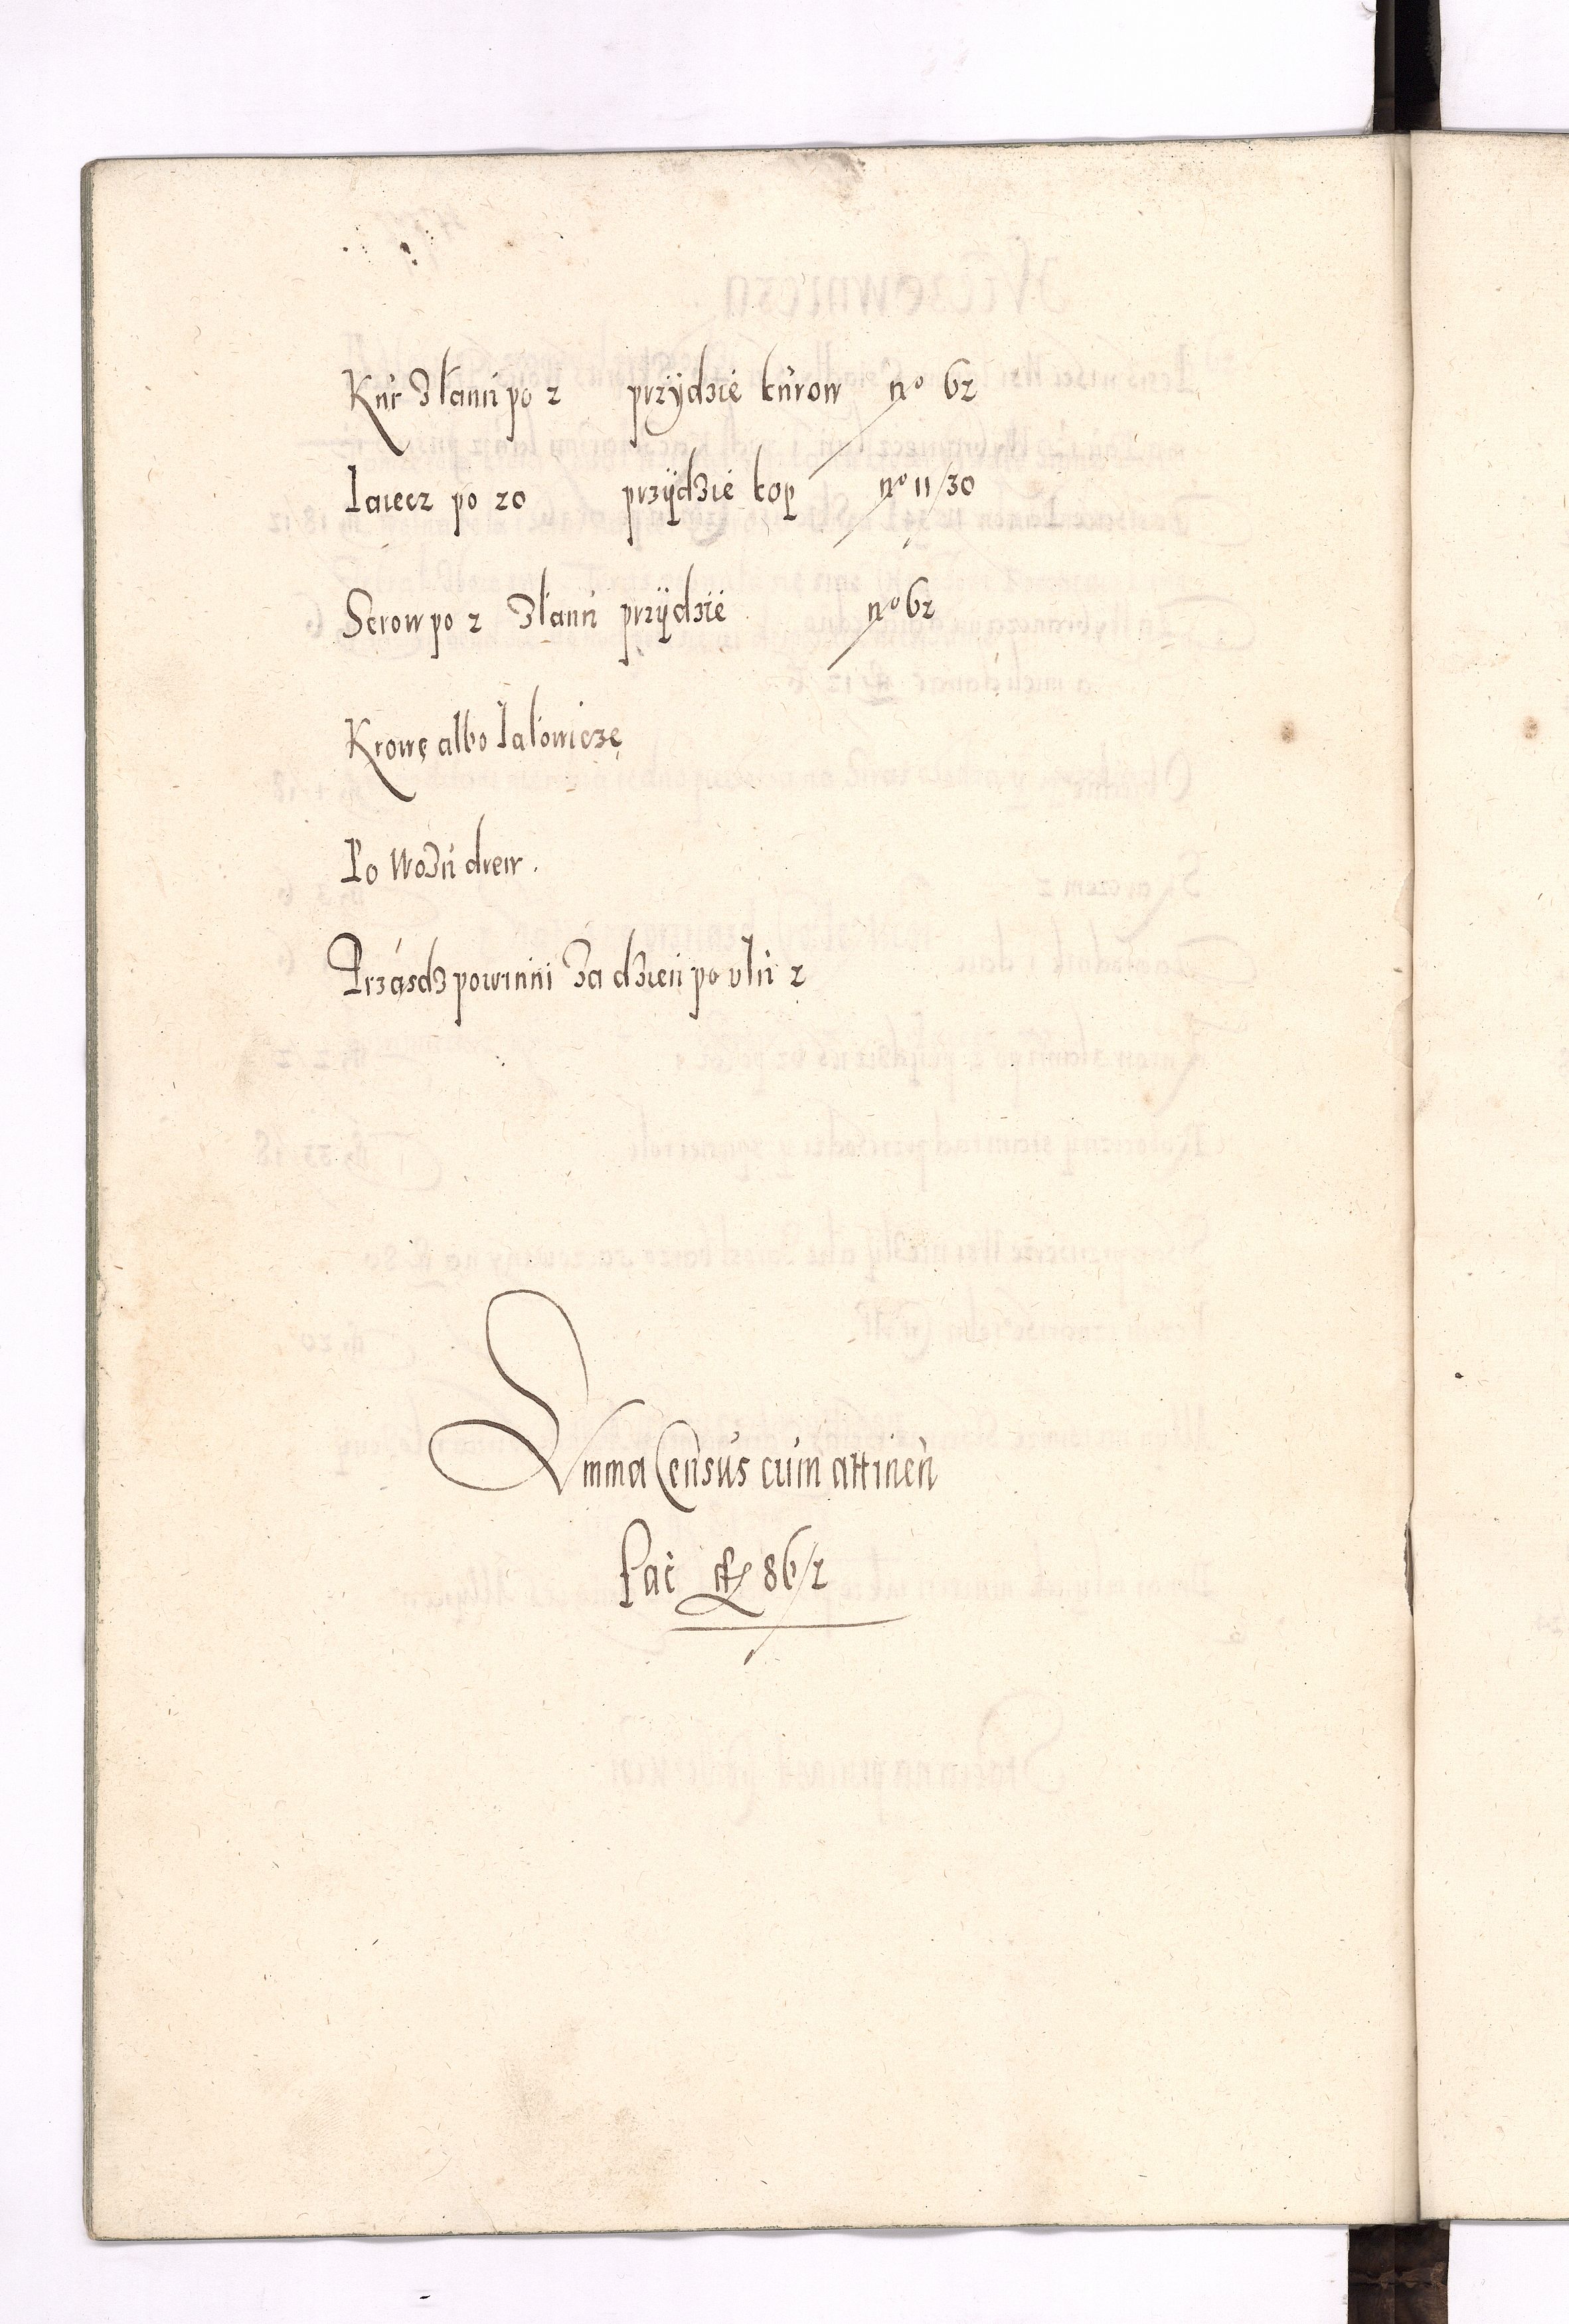 Kur z łanu po 2 przÿdzie kurow nº 62
Iaiecz po 20 przÿdzie kop nº 11/30
Serow po 2 z łanu przÿdzie nº 62
Krowę albo Iałowiczę
Po wozu drew.
Prząsdz powinni za dzien po ułu 2
Summa Census cum attinen
fac fl 86/2